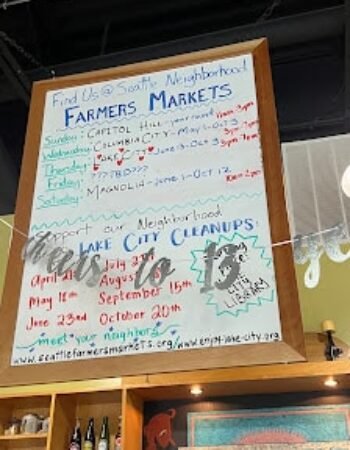 Find Us @ Seattle Neighborhood
FARMERS MARKETS
Sunday: CAPITOL HILL - year round 11am-3pm
Wednesday: COLUMBIA CITY - May 1-Oct 9 3pm-7pm
Thursday: LAKE CITY June 13-Oct 3 3pm-7pm
Friday: ???TBD???
Saturday: MAGNOLIA - June 1-Oct 12 10am-2pm
Support our Neighborhood
LAKE CITY CLEANUPS:
April July
May 18th August
June 23rd September 15th
October 20th
CITY
LIBRARY
cheers to 13
meet your neighbors
www.seattlefarmersmarkets.org/www.enjoy-lake-city.org